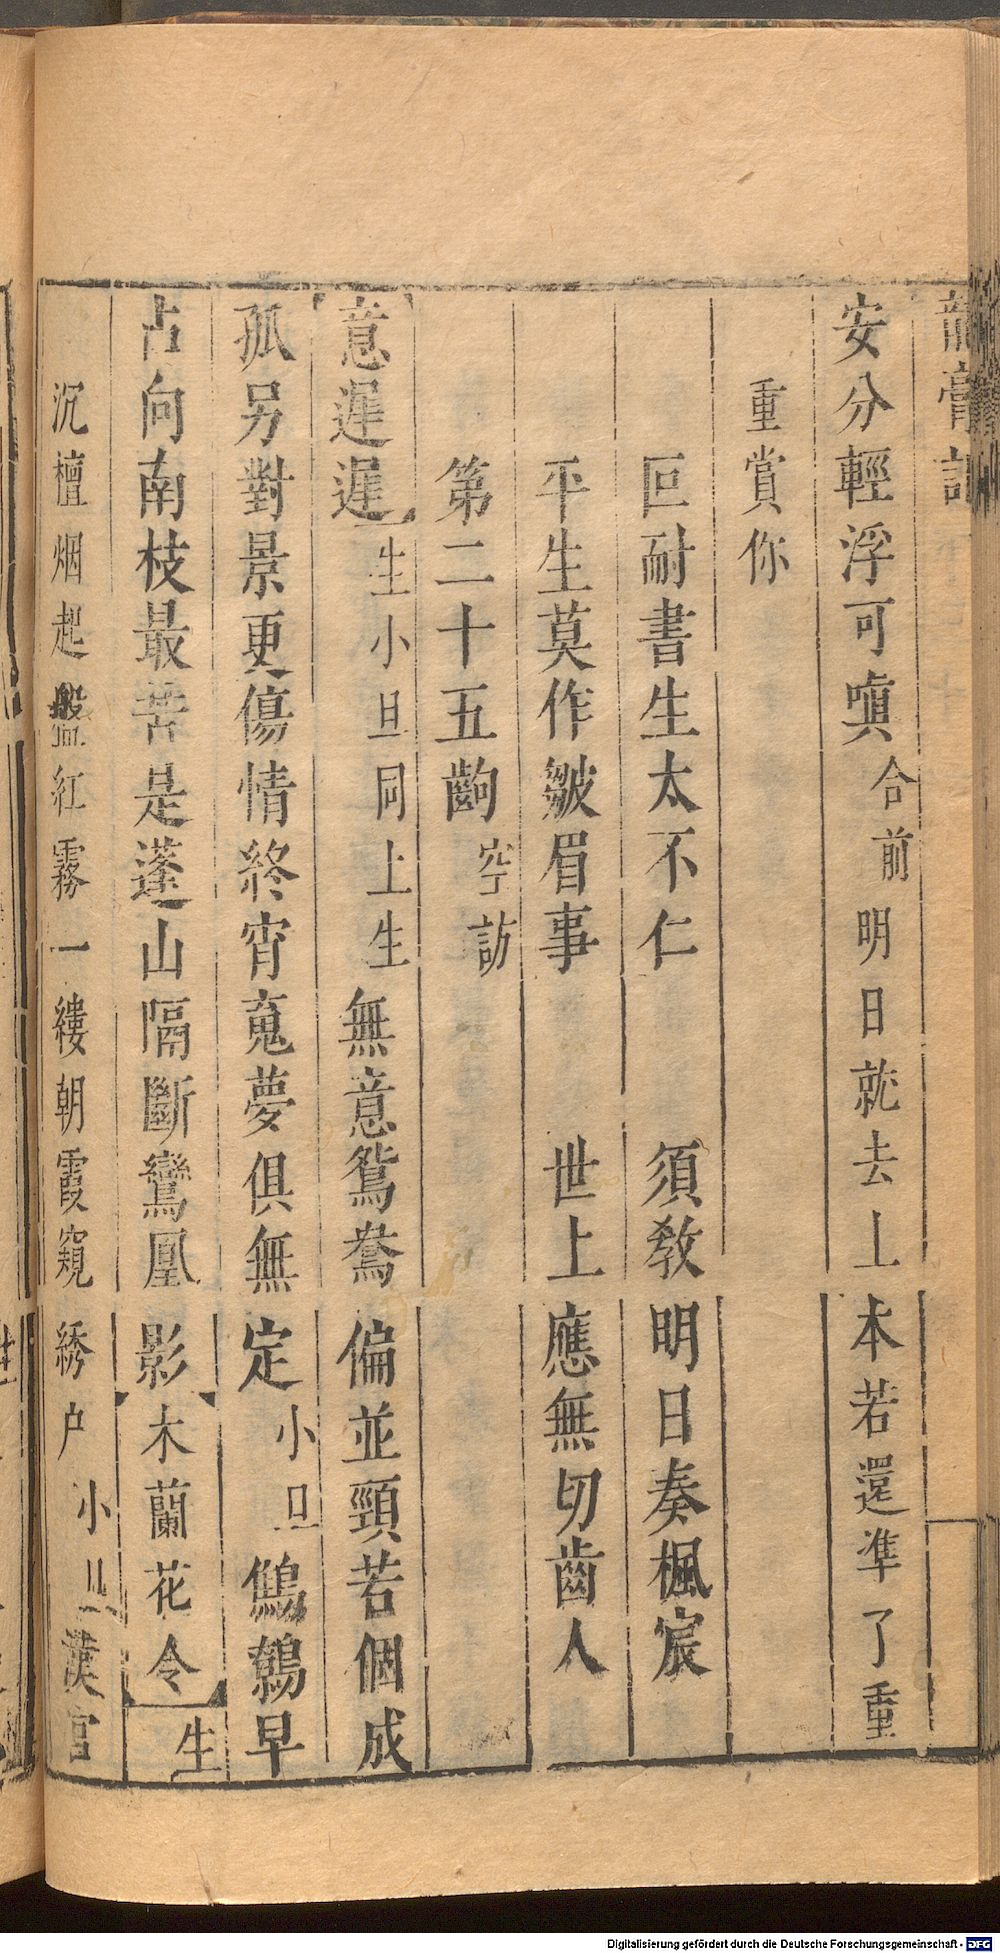 龍膏記
安分輕浮可嗔合前明日就去上本若還準了重
重賞你
叵耐書生太不仁　須教明日奏楓宸
平生莫作皺眉事　世上應無切齒人
第二十五齣空訪
意遲遲生小旦同上生無意鴛鴦偏並頸若個成
孤另對景更傷情終宵䰟夢俱無定小旦鷦鷯早
占向南枝最苦是蓬山隔斷鸞凰影木蘭花令生
沉檀烟起盤紅霧一縷朝霞窺綉户小旦漢宮
Digitalisierung gefördert durch die Deutsche Forschungsgemeinschaft - DFG